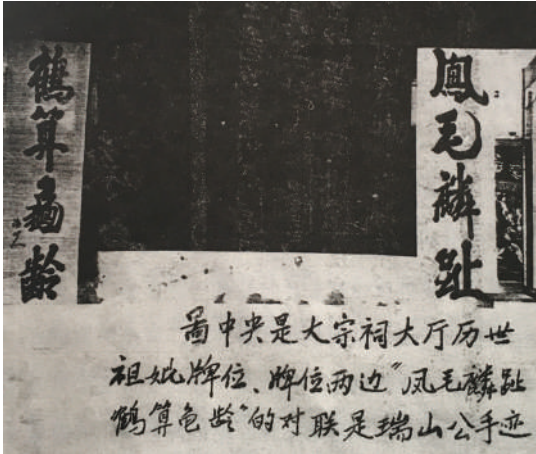 鳳毛麟趾
鶴算龜齡
图中央是大宗祠大厅历世
祖妣牌位、牌位两边"凤毛麟趾
鹤算龟龄"的对联是瑞山公手迹